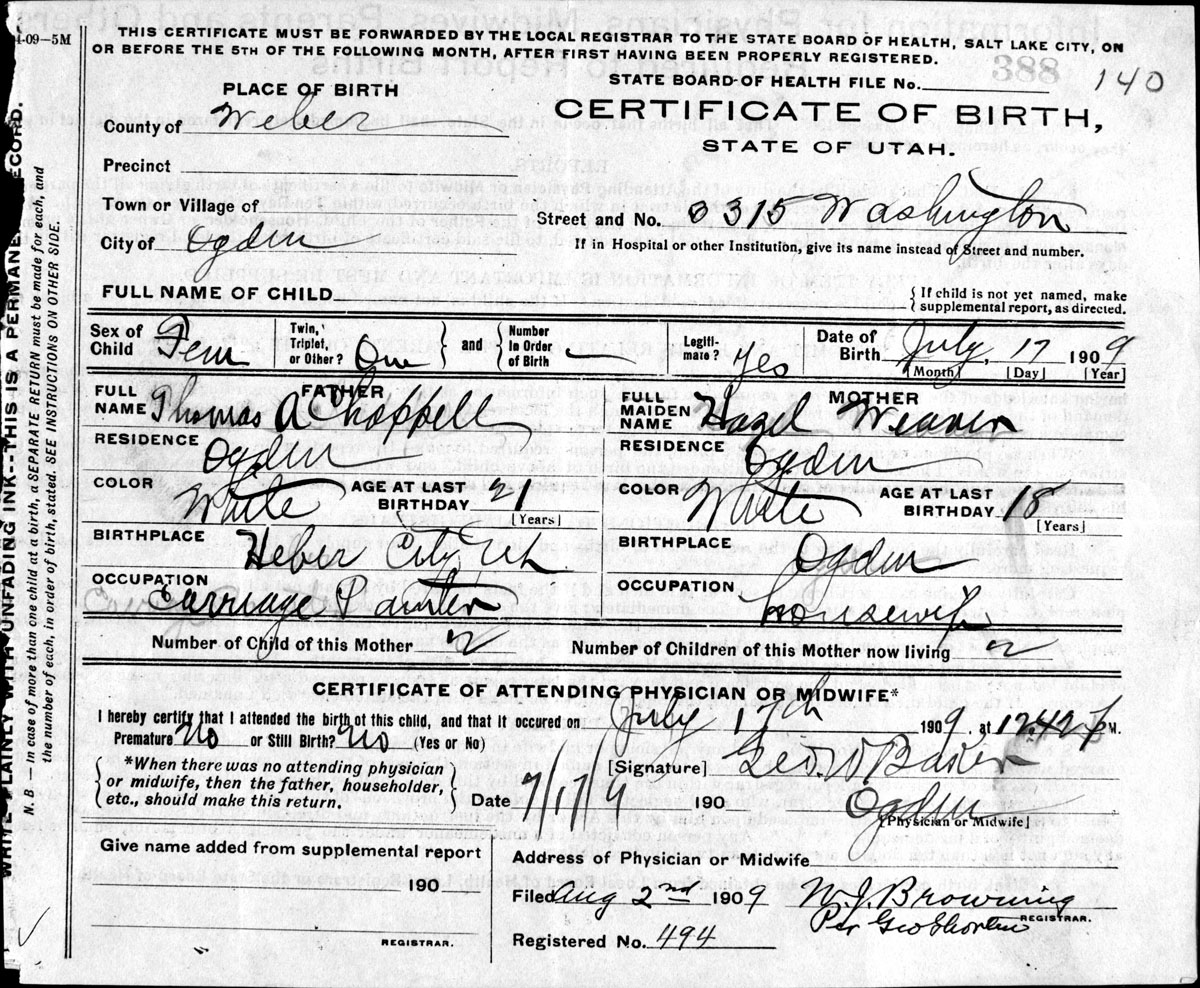 4-09—5M
THIS CERTIFICATE MUST BE FORWARDED BY THE LOCAL REGISTRAR TO THE STATE BOARD OF HEALTH, SALT LAKE CITY, ON
OR BEFORE THE 5TH OF THE FOLLOWING MONTH, AFTER FIRST HAVING BEEN PROPERLY REGISTERED.
388
140
STATE BOARD OF HEALTH FILE No.
PLACE OF BIRTH
CERTIFICATE OF BIRTH,
STATE OF UTAH.
County of Weber
Precinct
Town or Village of
Street and No. 3315 Washington
City of Ogden
If in Hospital or other Institution, give its name instead of Street and number.
FULL NAME OF CHILD
If child is not yet named, make
supplemental report, as directed.
Sex of Child Fem
Twin, Triplet, or Other? One
and
Number in Order of Birth
Legiti-mate? Yes
Date of Birth July 17 1909
[Month] [Day] [Year]
FATHER
FULL NAME Thomas A Choppell
RESIDENCE Ogden
COLOR White AGE AT LAST BIRTHDAY 21
[Years]
BIRTHPLACE Heber City Ut
OCCUPATION Carriage Painter
MOTHER
FULL MAIDEN NAME Hazel Weaver
RESIDENCE Ogden
COLOR White AGE AT LAST BIRTHDAY 18
[Years]
BIRTHPLACE Ogden
OCCUPATION Housewife
Number of Child of this Mother 2
Number of Children of this Mother now living 2
CERTIFICATE OF ATTENDING PHYSICIAN OR MIDWIFE*
I hereby certify that I attended the birth ot this child, and that it occured on July 17th 1909, at 12:42 P M.
Premature No or Still Birth? No (Yes or No)
*When there was no attending physician
or midwife, then the father, householder,
etc., should make this return.
[Signature] Geo. W Baker
Date 7/17/9 190
Ogden
[Physician or Midwife]
Give name added from supplemental report
190
REGISTRAR.
Address of Physician or Midwife
Filed Aug 2nd 1909 N. J. Browning
REGISTRAR.
Per Geo
Registered No. 494
WRITE PLAINLY WITH UNFADING INK--THIS IS A PERMANENT RECORD.
N. B.—In case of more than one child at a birth, a SEPARATE RETURN must be made for each, and
the number of each, in order of birth, stated. SEE INSTRUCTIONS ON OTHER SIDE.